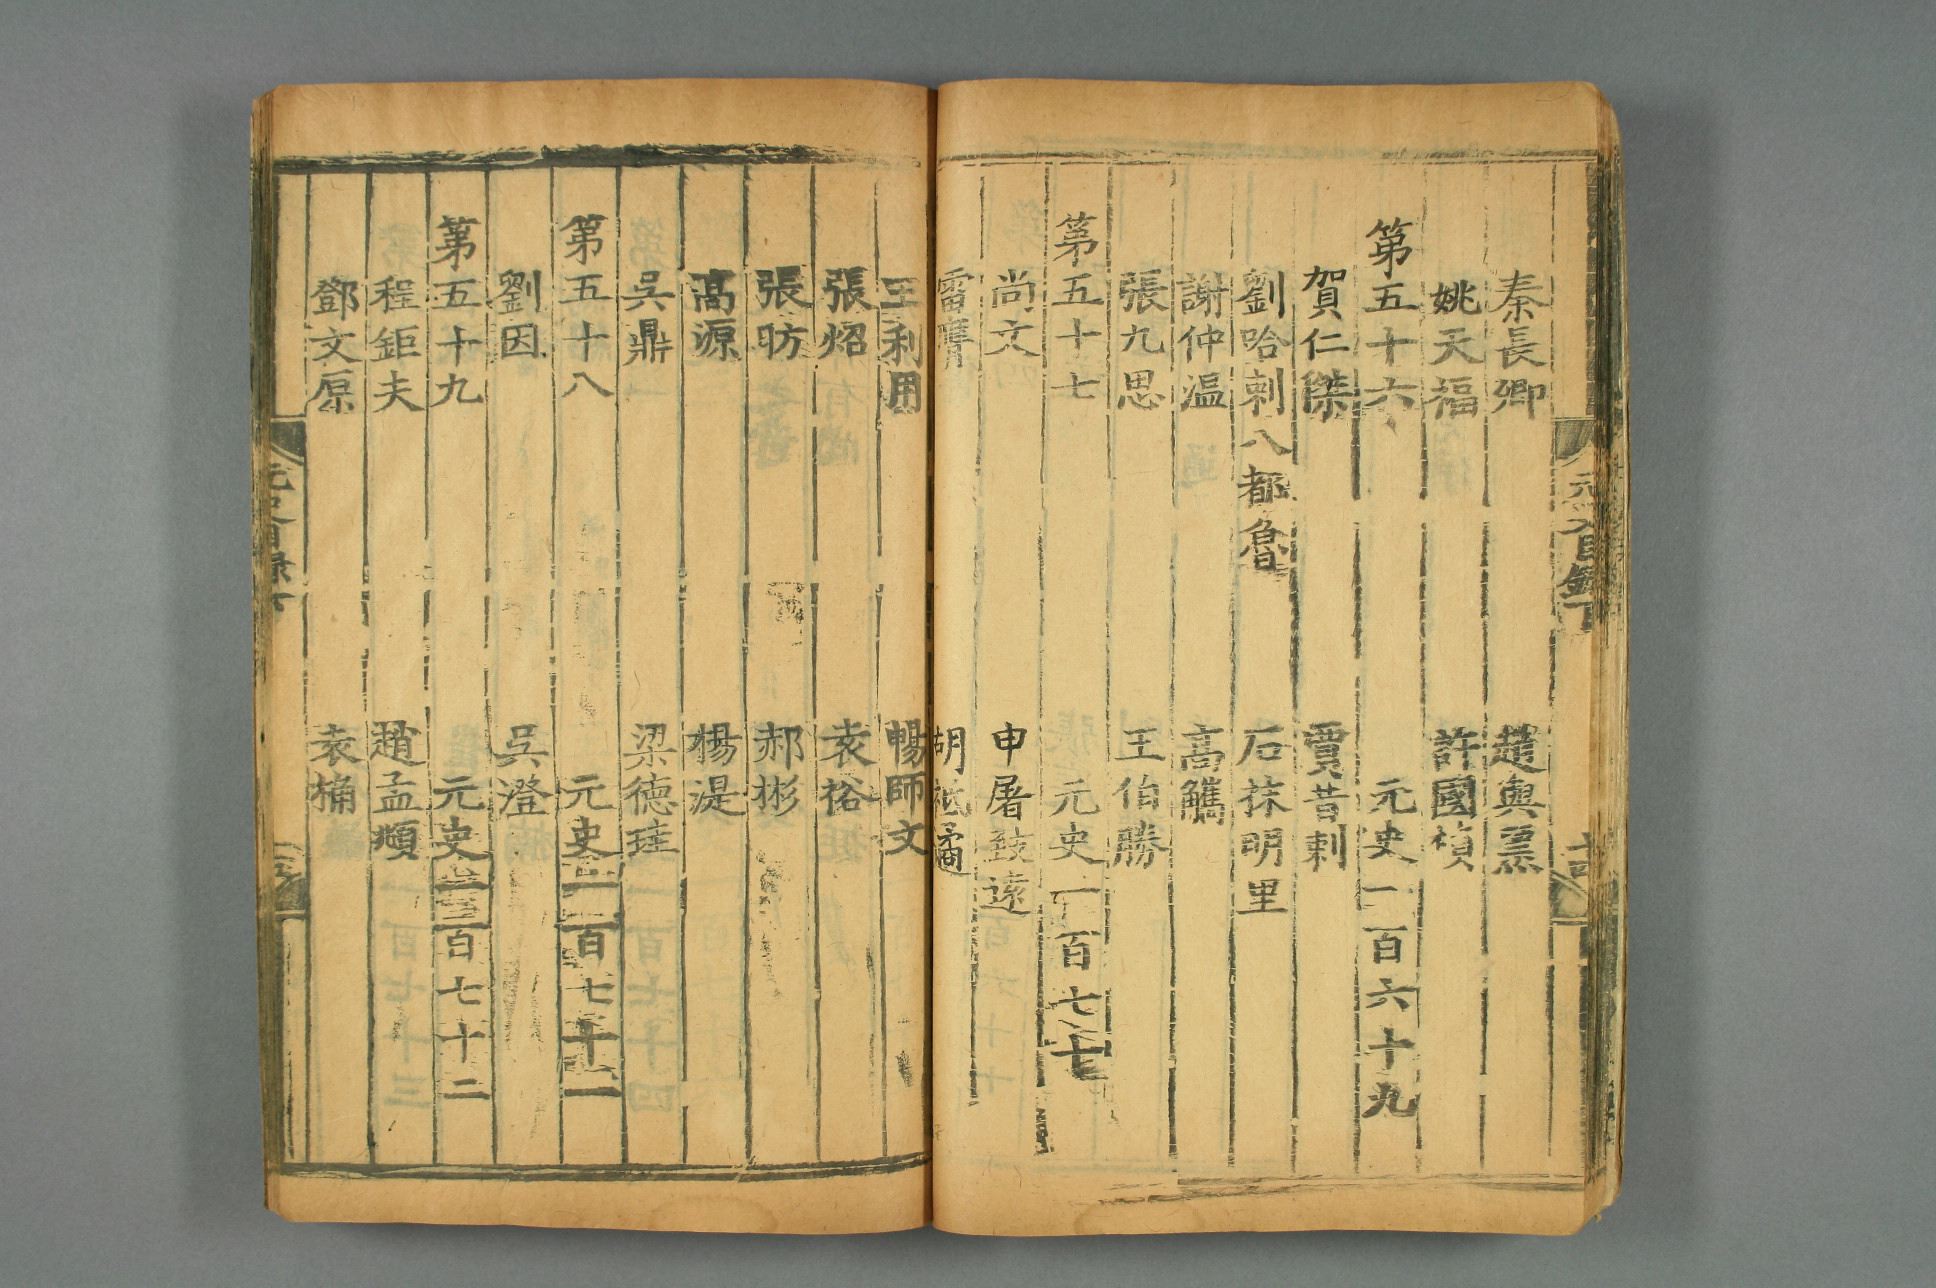 元史目錄下
秦長卿 趙與𤉵
姚天福 許國禎
第五十六 元史一百六十九
賀仁傑 賈昔剌
劉哈剌八都魯 石抹明里
謝仲温 高觿
張九思 王伯勝
第五十七 元史一百七七
尚文 申屠致遠
雷膺 胡祗遹
王利用 暢師文
張炤 袁裕
張昉 郝彬
高源 楊湜
吳鼎 梁德珪
第五十八 元史一百七十一
劉因 吳澄
第五十九 元史一百七十二
程鉅夫 趙孟頫
鄧文原 袁桷
元史目錄下